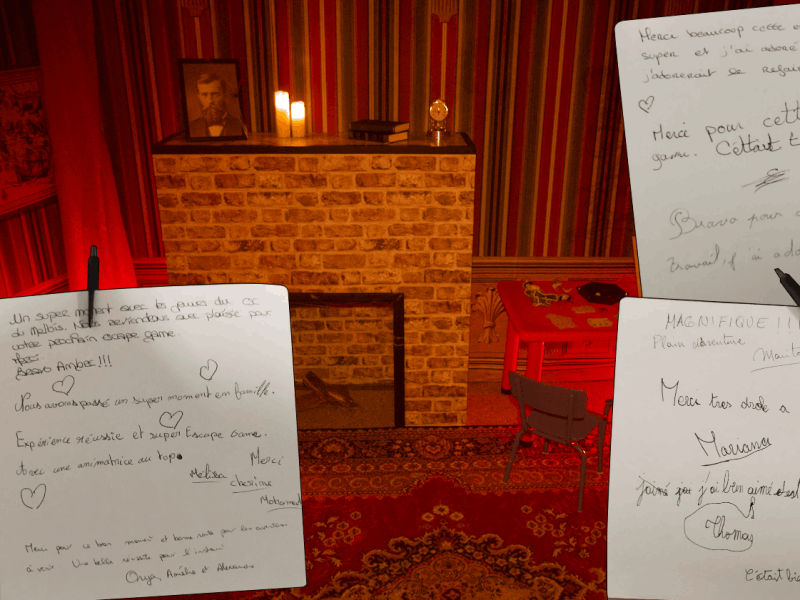 Un super moment avec les jeunes du CSC
du Mallois. Nous reviendrons avec plaisir pour
votre prochain escape game.
Bravo Amber!!!
Nous avons passé un super moment en famille.
Expérience réussie et super Escape Game.
Avec une animatrice au top.
Merci
Mélissa
cherine
Mohamed
Merci pour ce bon moment et bonne suite pour les aventures
à venir. Une belle réussite pour l'instant
Amélie et Alexandre
Merci beaucoup cette
super et j'ai adoré
j'adorerait le refair
Merci pour cett
game. C'était t
Bravo pour
travail, j'ai ado
MAGNIFIQUE !!!
Pleine aventure
Merci tres drole a
Mariana
j'ai bien aimé
Thomas
C'était bi